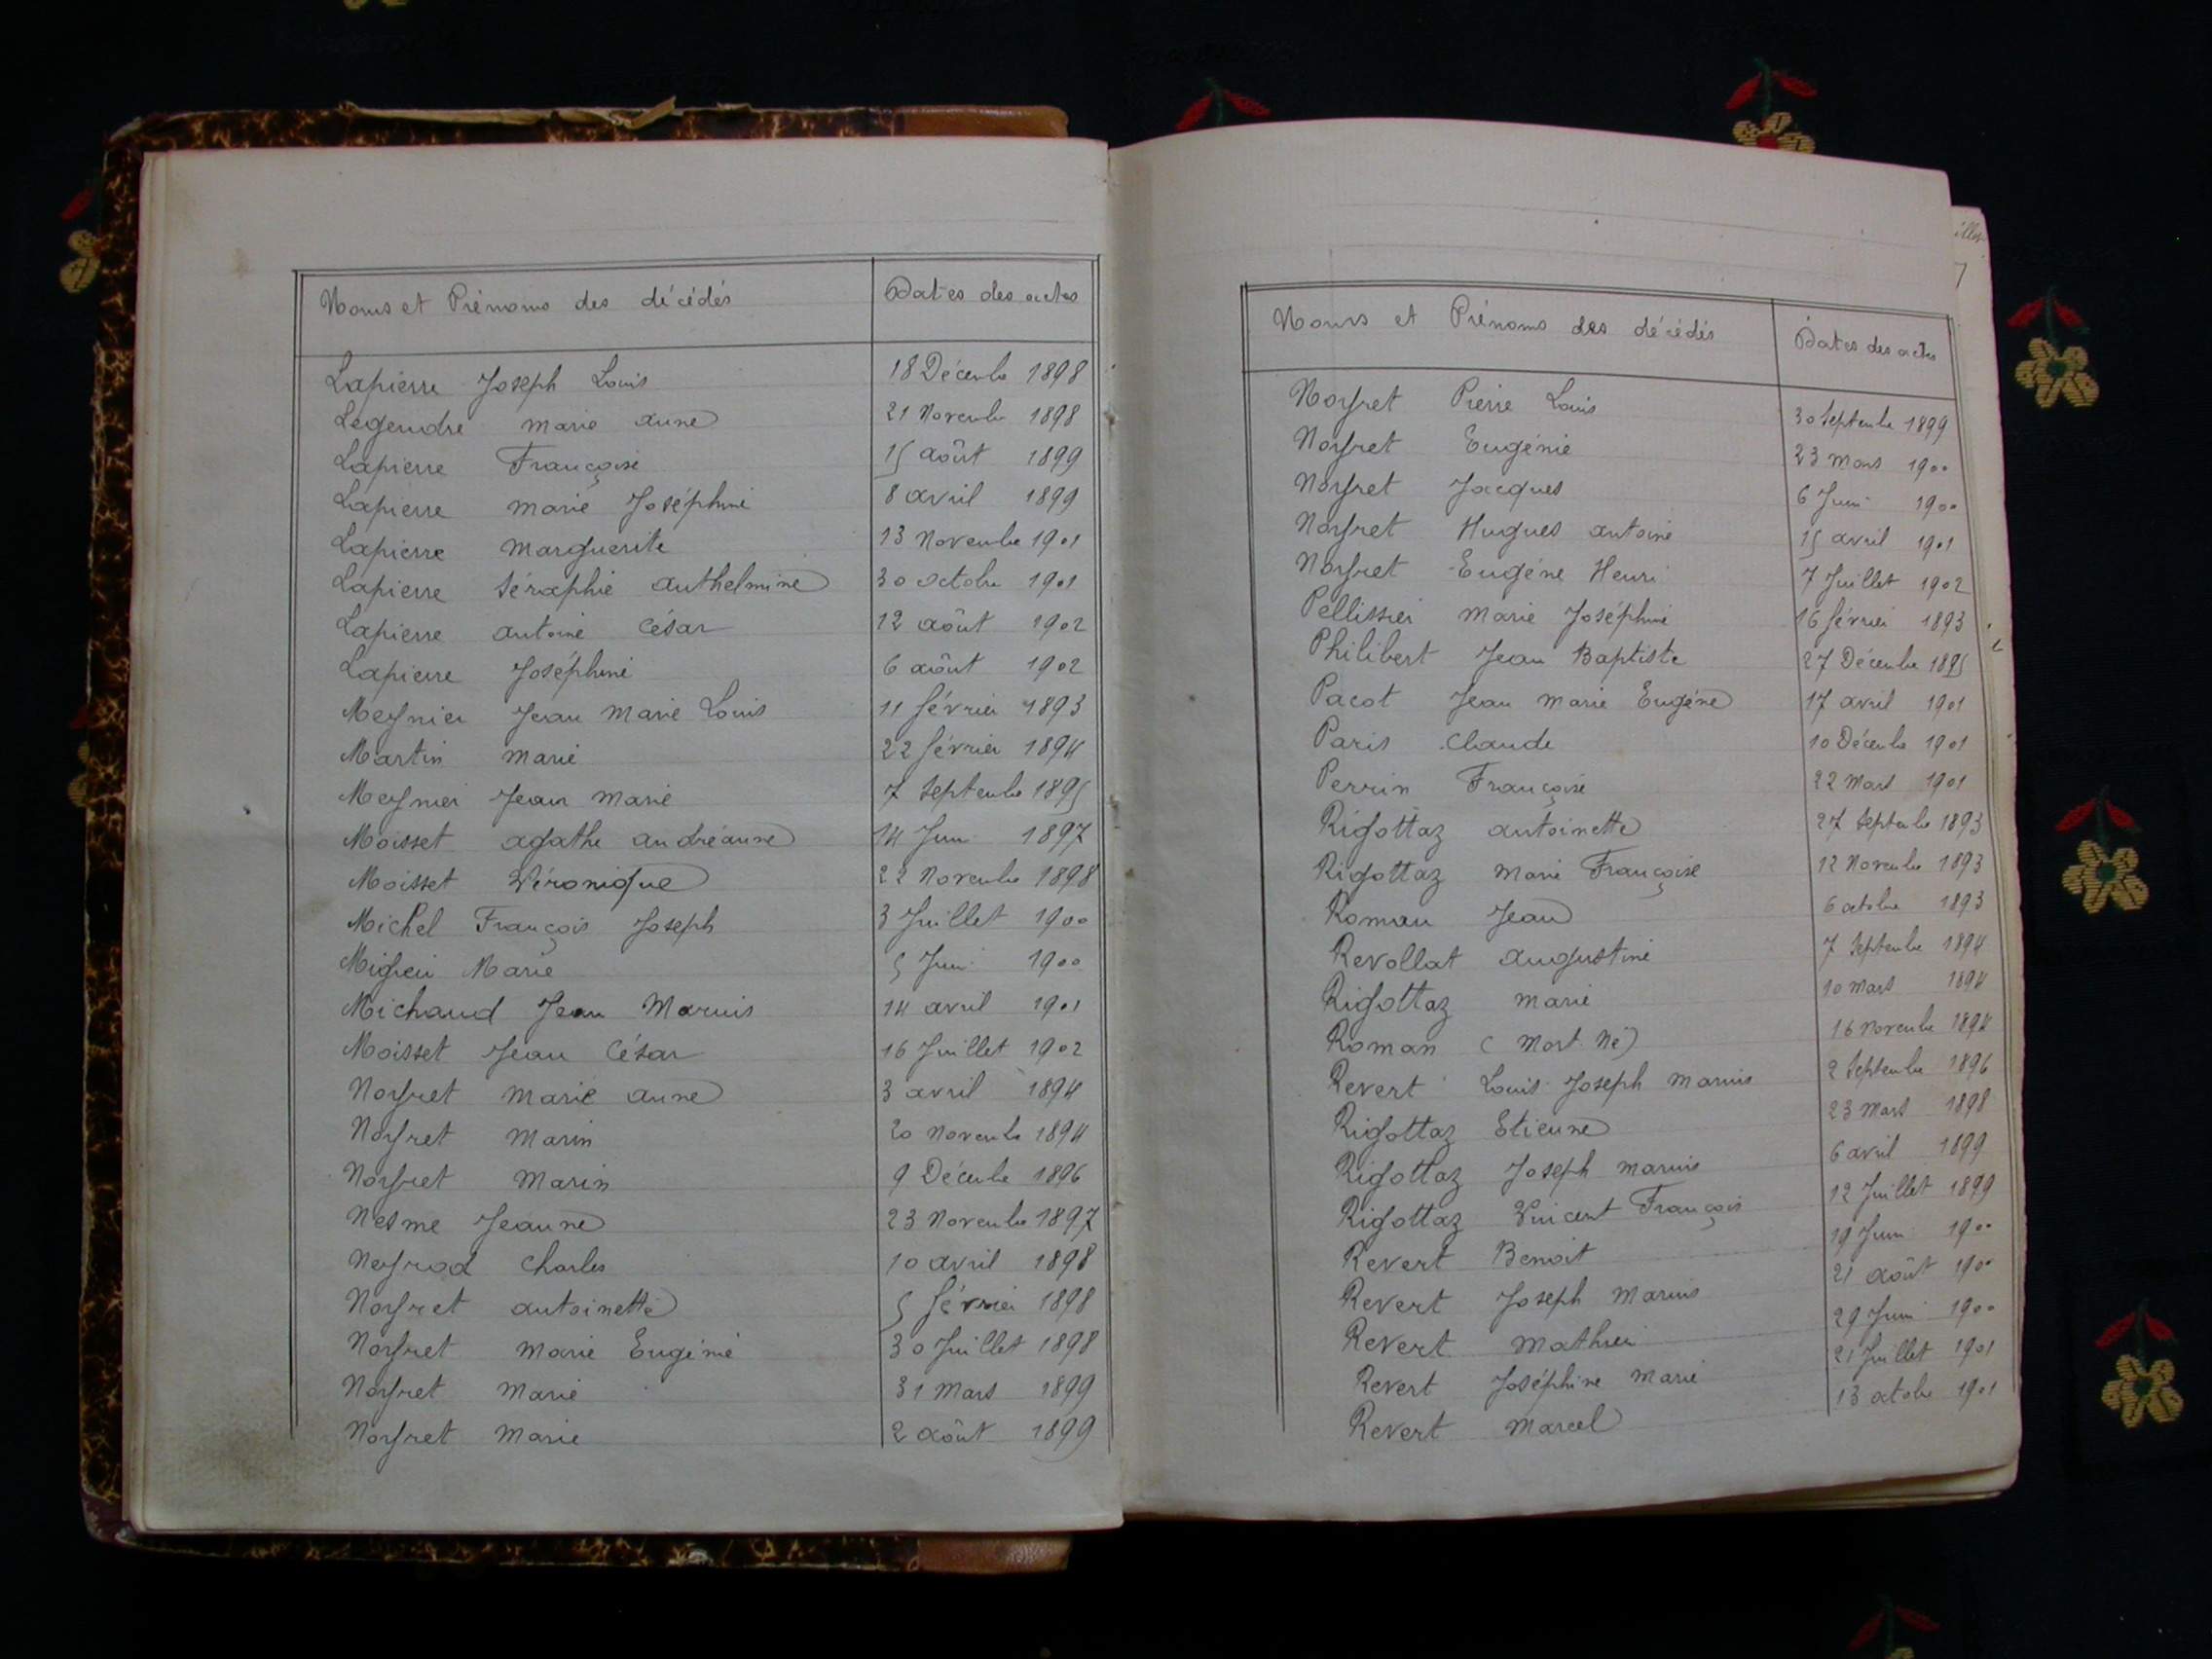 Noms et Prénoms des décédés Dates des actes
Lapierre Joseph Louis 18 Décembre 1898
Legendre marie anne 21 Novembre 1898
Lapierre Françoise 15 août 1899
Lapierre marie Joséphine 8 avril 1899
Lapierre marguerite 13 Novembre 1901
Lapierre Séraphie anthelmine 30 octobre 1901
Lapierre antoine César 12 août 1902
Lapierre Joséphine 6 août 1902
Meynier Jean Marie Louis 11 février 1893
Martin marie 22 février 1894
Meynier Jean marie 7 Septembre 1895
Moisset agathe andréanne 14 Juin 1897
Moisset Véronique 22 Novembre 1898
Michel François Joseph 3 Juillet 1900
Marie 5 Juin 1900
Michaud Jean Marius 14 avril 1901
Moisset Jean César 16 Juillet 1902
Noyret marie anne 3 avril 1894
Noyret marin 20 Novembre 1894
Noyret marin 9 Décembre 1896
Nesme Jeanne 23 Novembre 1897
Neyrod Charles 10 avril 1898
Noyret antoinette 5 février 1898
Noyret marie Eugénie 30 Juillet 1898
Noyret marie 31 mars 1899
Noyret marie 2 août 1899
Noms et Prénoms des décédés Dates des actes
Noyret Pierre Louis 30 Septembre 1899
Noyret Eugénie 23 mars 1900
Noyret Jacques 6 Juin 1900
Noyret Hugues antoine 15 avril 1901
Noyret Eugéne Henri 7 Juillet 1902
Pellissier marie Joséphine 16 février 1893
Philibert Jean Baptiste 27 Décembre 1895
Pacot Jean marie Eugéne 17 avril 1901
Paris Claude 10 Décembre 1901
Perrin Françoise 22 mars 1901
Rigottaz antoinette 27 Septembre 1893
Rigottaz marie Françoise 12 Novembre 1893
Roman Jean 6 octobre 1893
Revollat augustine 7 Septembre 1894
Rigottaz marie 10 mars 1894
Roman (mort né) 16 Novembre 1894
Revert Louis Joseph marius 2 Septembre 1896
Rigottaz Etienne 23 mars 1898
Rigottaz Joseph marius 6 avril 1899
Rigottaz Vincent François 12 Juillet 1899
Revert Benoit 19 Juin 1900
Revert Joseph marius 21 août 1900
Revert mathieu 29 Juin 1900
Revert Joséphine marie 21 Juillet 1901
Revert marcel 13 octobre 1901